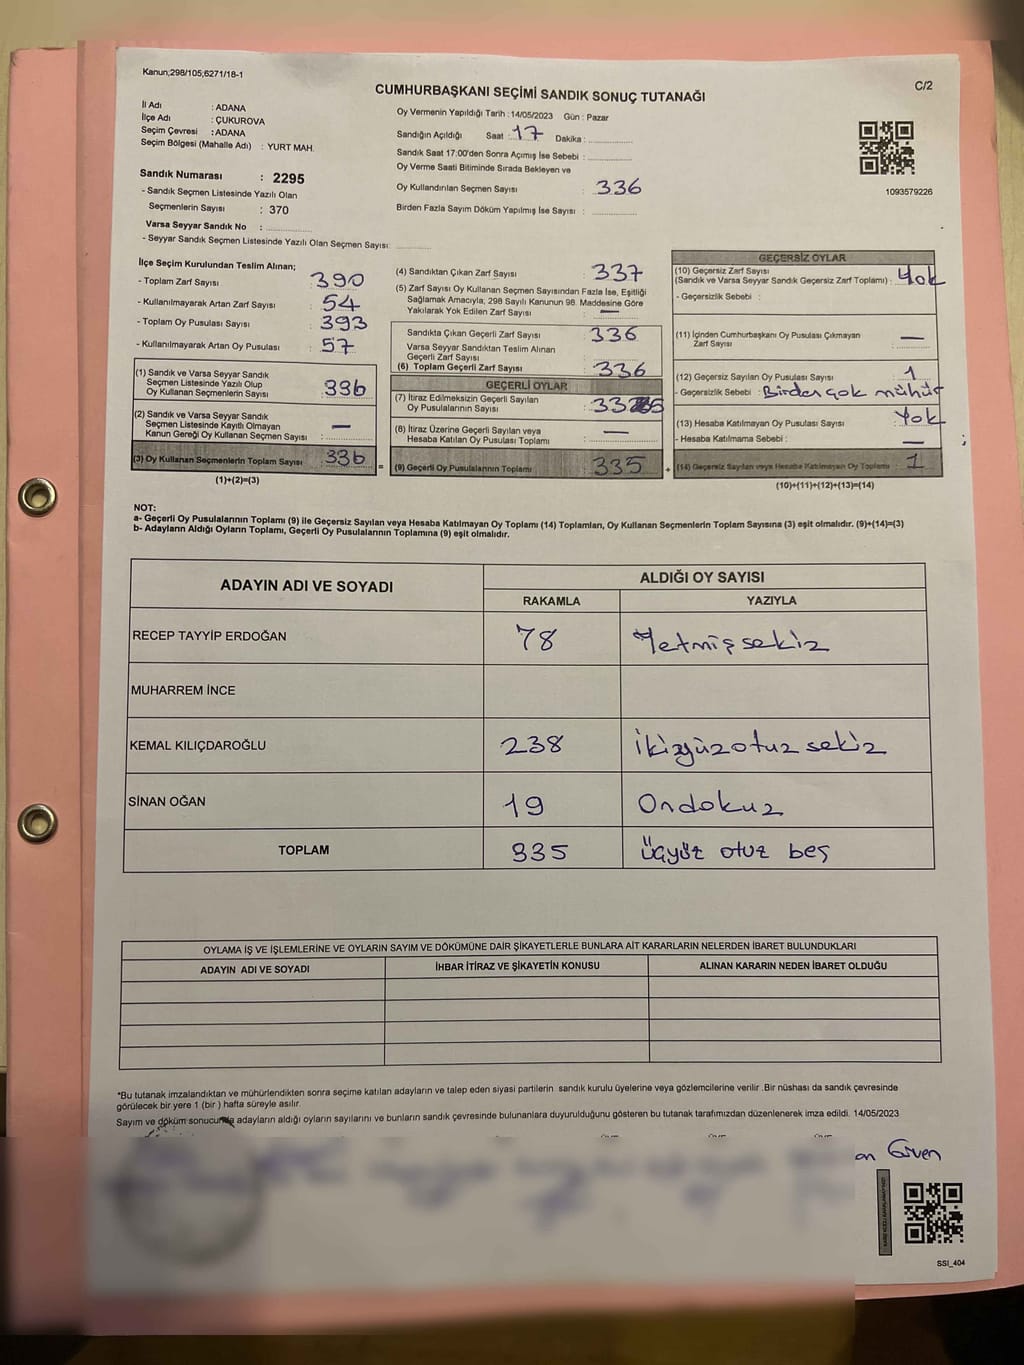 Kanun;298/105;6271/18-1
C/2
CUMHURBAŞKANI SEÇİMİ SANDIK SONUÇ TUTANAĞI
İl Adı : ADANA
İlçe Adı : ÇUKUROVA
Seçim Çevresi : ADANA
Seçim Bölgesi (Mahalle Adı) : YURT MAH.
Sandık Numarası : 2295
- Sandık Seçmen Listesinde Yazılı Olan
Seçmenlerin Sayısı : 370
Varsa Seyyar Sandık No :
- Seyyar Sandık Seçmen Listesinde Yazılı Olan Seçmen Sayısı:
Oy Vermenin Yapıldığı Tarih : 14/05/2023 Gün : Pazar
Sandığın Açıldığı Saat : 17 Dakika :
Sandık Saat 17:00'den Sonra Açımış İse Sebebi :
Oy Verme Saati Bitiminde Sırada Bekleyen ve
Oy Kullandırılan Seçmen Sayısı : 336
Birden Fazla Sayım Döküm Yapılmış İse Sayısı :
1093579226
İlçe Seçim Kurulundan Teslim Alınan;
- Toplam Zarf Sayısı : 390
- Kullanılmayarak Artan Zarf Sayısı : 54
- Toplam Oy Pusulası Sayısı : 393
- Kullanılmayarak Artan Oy Pusulası : 57
(1) Sandık ve Varsa Seyyar Sandık
Seçmen Listesinde Yazılı Olup
Oy Kullanan Seçmenlerin Sayısı : 336
(2) Sandık ve Varsa Seyyar Sandık
Seçmen Listesinde Kayıtlı Olmayan
Kanun Gereği Oy Kullanan Seçmen Sayısı : —
(3) Oy Kullanan Seçmenlerin Toplam Sayısı : 336
(1)+(2)=(3)
=
(4) Sandıktan Çıkan Zarf Sayısı : 337
(5) Zarf Sayısı Oy Kullanan Seçmen Sayısından Fazla İse, Eşitliği
Sağlamak Amacıyla, 298 Sayılı Kanunun 98. Maddesine Göre
Yakılarak Yok Edilen Zarf Sayısı : —
Sandıkta Çıkan Geçerli Zarf Sayısı : 336
Varsa Seyyar Sandıktan Teslim Alınan
Geçerli Zarf Sayısı :
(6) Toplam Geçerli Zarf Sayısı : 336
GEÇERLİ OYLAR
(7) İtiraz Edilmeksizin Geçerli Sayılan
Oy Pusulalarının Sayısı : 335
(8) İtiraz Üzerine Geçerli Sayılan veya
Hesaba Katılan Oy Pusulası Toplamı : —
(9) Geçerli Oy Pusulalarının Toplamı : 335
+
GEÇERSİZ OYLAR
(10) Geçersiz Zarf Sayısı
(Sandık ve Varsa Seyyar Sandık Geçersiz Zarf Toplamı) : Yok
- Geçersizlik Sebebi :
(11) İçinden Cumhurbaşkanı Oy Pusulası Çıkmayan
Zarf Sayısı : —
(12) Geçersiz Sayılan Oy Pusulası Sayısı : 1
- Geçersizlik Sebebi : Birden çok mühür
(13) Hesaba Katılmayan Oy Pusulası Sayısı : Yok
- Hesaba Katılmama Sebebi : —
(14) Geçersiz Sayılan veya Hesaba Katılmayan Oy Toplamı : 1
(10)+(11)+(12)+(13)=(14)
NOT:
a- Geçerli Oy Pusulalarının Toplamı (9) ile Geçersiz Sayılan veya Hesaba Katılmayan Oy Toplamı (14) Toplamları, Oy Kullanan Seçmenlerin Toplam Sayısına (3) eşit olmalıdır. (9)+(14)=(3)
b- Adayların Aldığı Oyların Toplamı, Geçerli Oy Pusulalarının Toplamına (9) eşit olmalıdır.
ADAYIN ADI VE SOYADI
ALDIĞI OY SAYISI
RAKAMLA YAZIYLA
RECEP TAYYİP ERDOĞAN 78 Yetmişsekiz
MUHARREM İNCE
KEMAL KILIÇDAROĞLU 238 İkiyüzotuzsekiz
SİNAN OĞAN 19 Ondokuz
TOPLAM 335 üçyüz otuz beş
OYLAMA İŞ VE İŞLEMLERİNE VE OYLARIN SAYIM VE DÖKÜMÜNE DAİR ŞİKAYETLERLE BUNLARA AİT KARARLARIN NELERDEN İBARET BULUNDUKLARI
ADAYIN ADI VE SOYADI İHBAR İTİRAZ VE ŞİKAYETİN KONUSU ALINAN KARARIN NEDEN İBARET OLDUĞU
*Bu tutanak imzalandıktan ve mühürlendikten sonra seçime katılan adayların ve talep eden siyasi partilerin sandık kurulu üyelerine veya gözlemcilerine verilir .Bir nüshası da sandık çevresinde
görülecek bir yere 1 (bir ) hafta süreyle asılır.
Sayım ve döküm sonucunda adayların aldığı oyların sayılarını ve bunların sandık çevresinde bulunanlara duyurulduğunu gösteren bu tutanak tarafımızdan düzenlenerek imza edildi. 14/05/2023
SSI_404